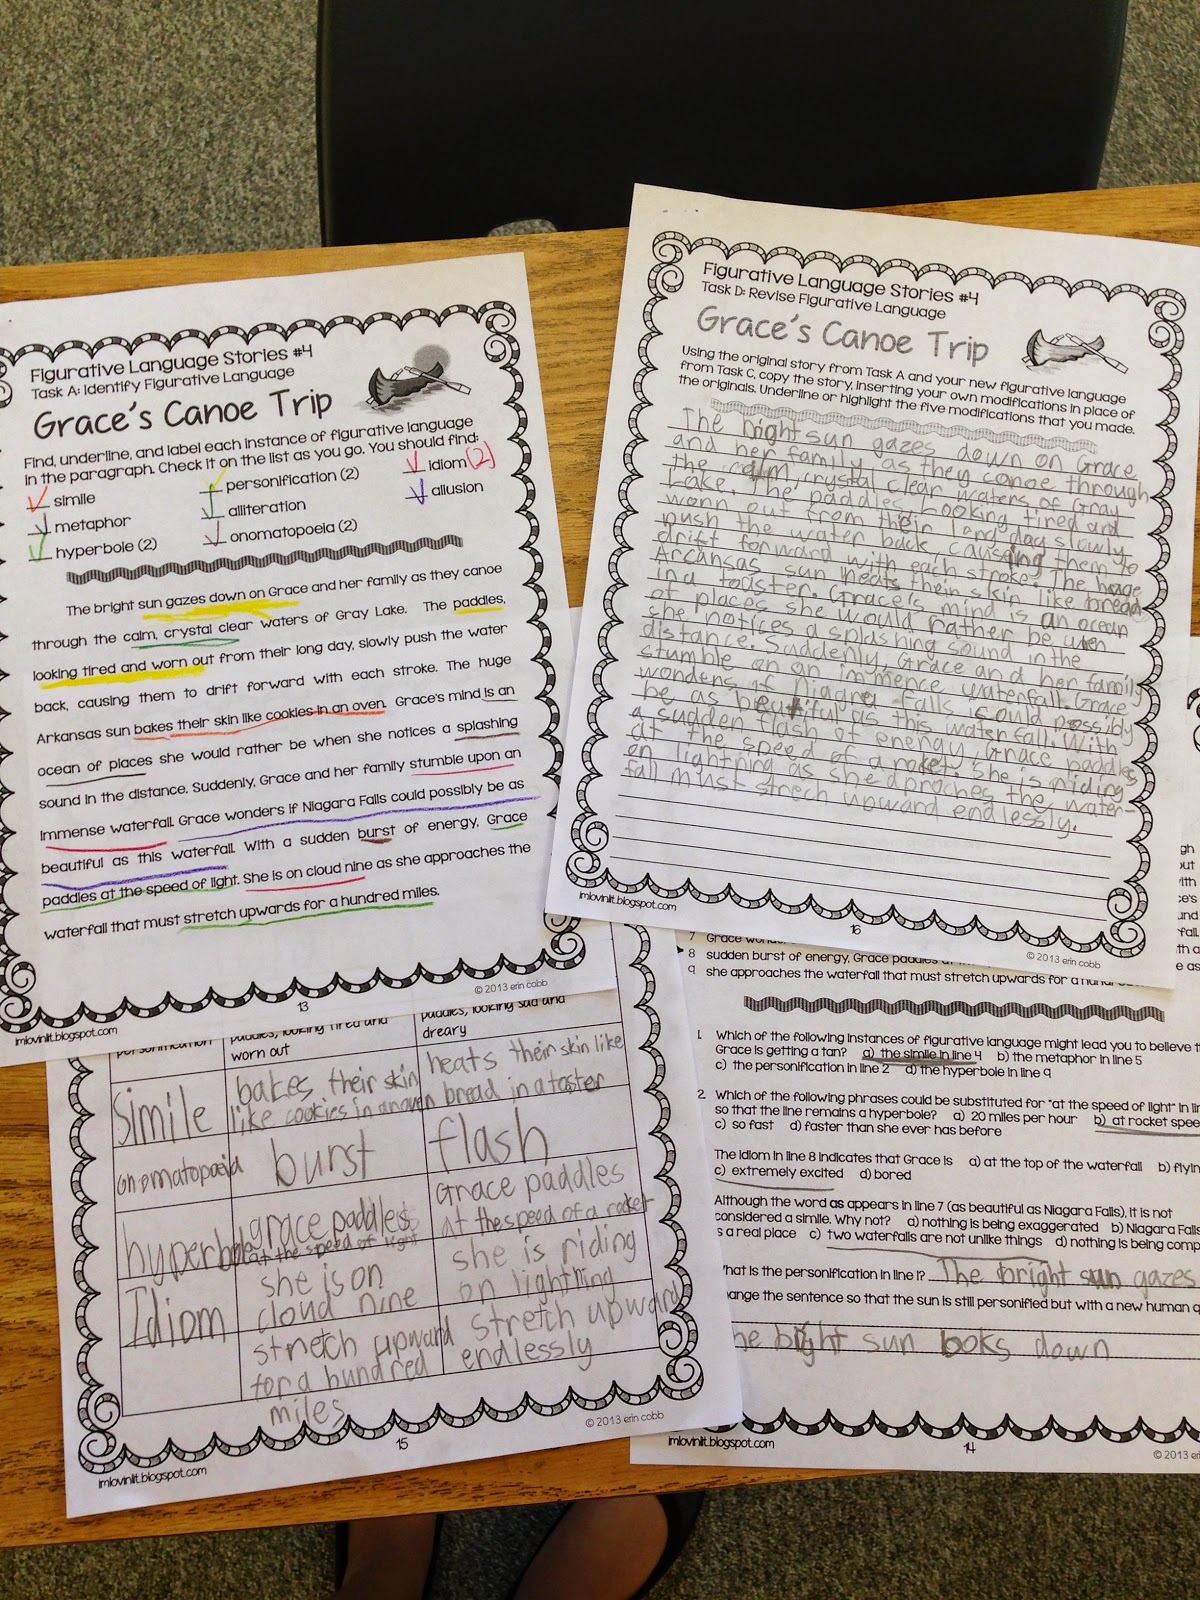 Figurative Language Stories #4
Task A: Identify Figurative Language
Grace's Canoe Trip
Find, underline, and label each instance of figurative language
in the paragraph. Check it on the list as you go. You should find:
simile
personification (2)
idiom (2)
metaphor
alliteration
allusion
hyperbole (2)
onomatopoeia (2)
The bright sun gazes down on Grace and her family as they canoe
through the calm, crystal clear waters of Gray Lake. The paddles,
looking tired and worn out from their long day, slowly push the water
back, causing them to drift forward with each stroke. The huge
Arkansas sun bakes their skin like cookies in an oven. Grace's mind is an
ocean of places she would rather be when she notices a splashing
sound in the distance. Suddenly, Grace and her family stumble upon an
immense waterfall. Grace wonders if Niagara Falls could possibly be as
beautiful as this waterfall. With a sudden burst of energy, Grace
paddles at the speed of light. She is on cloud nine as she approaches the
waterfall that must stretch upwards for a hundred miles.
13
© 2013 erin cobb
imlovinlit.blogspot.com
Figurative Language Stories #4
Task D: Revise Figurative Language
Grace's Canoe Trip
Using the original story from Task A and your new figurative language
from Task C, copy the story, inserting your own modifications in place of
the originals. Underline or highlight the five modifications that you made.
The bright sun gazes down on Grace
and her family as they canoe through
the calm, crystal clear waters of Gray
Lake. The paddles, Looking tired and
worn out from their long day slowly
push the water back, causing them to
drift forward with each stroke. The huge
Arcansas sun heats their skin like bread
in a toaster. Grace's mind is an ocean
of places she would rather be wen
she notices a splashing sound in the
distance. Suddenly, Grace and her family
stumble on an immence waterfall. Grace
wonders if Niagra falls could possibly
be as beutiful as this waterfall. With
a sudden flash of energy, Grace paddles
at the speed of a roket. She is riding
on lightning as she aproches the water-
fall must strech upward endlessly.
imlovinlit.blogspot.com
16
© 2013 erin cobb
personification
paddles, looking tired and
worn out
paddles, looking sad and
dreary
Simile
bakes their skin
like cookies in an oven
heats their skin like
bread in a toster
onomatopoeia
burst
flash
hyperbole
grace paddles
at the speed of light
Grace paddles
at the speed of a roket
Idiom
she is on
cloud nine
she is riding
on lightning
stretch upward
for a hundred
miles
stretch upward
endlessly
15
© 2013 erin cobb
imlovinlit.blogspot.com
7 Grace
8 sudden burst of energy, Grace paddles
9 she approaches the waterfall that must stretch upwards for a
1. Which of the following instances of figurative language might lead you to believe
Grace is getting a tan? a) the simile in line 4 b) the metaphor in line 5
c) the personification in line 2 d) the hyperbole in line 9
2. Which of the following phrases could be substituted for "at the speed of light" in
so that the line remains a hyperbole? a) 20 miles per hour b) at rocket
c) so fast d) faster than she ever has before
The idiom in line 8 indicates that Grace is a) at the top of the waterfall b)
c) extremely excited d) bored
Although the word as appears in line 7 (as beautiful as Niagara Falls), it is not
considered a simile. Why not? a) nothing is being exaggerated b) Niagara Falls
is a real place c) two waterfalls are not unlike things d) nothing is being
What is the personification in line 1? The bright sun gazes
the sentence so that the sun is still personified but with a new human
bright sun looks down
imlovinlit.blogspot.com
14
© 2013